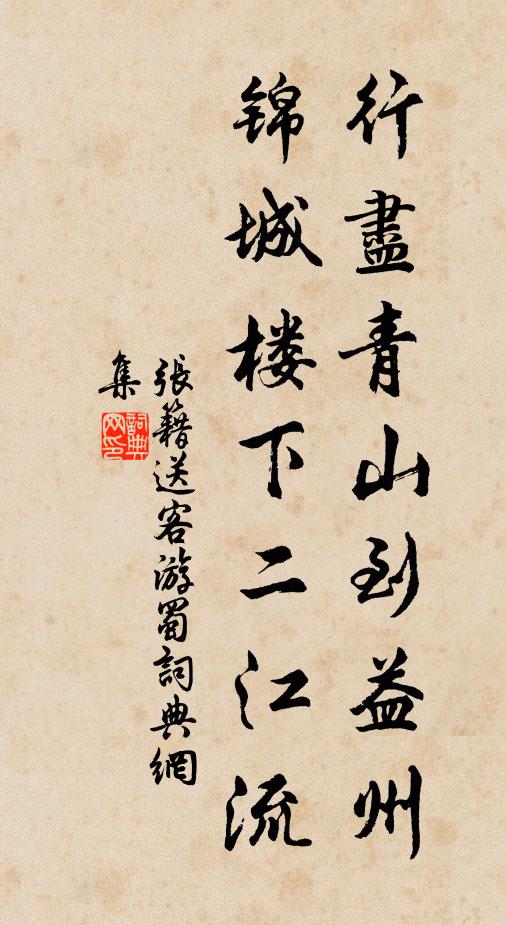 行盡青山到益州
锦城楼下二江流
張籍送客游蜀詞典網
集
詞典
网印